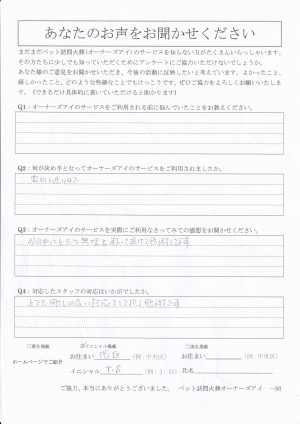 あなたのお声をお聞かせください
まだまだペット訪問火葬(オーナーズアイ)のサービスを知らない方がたくさんいらっしゃいます。
その方たちに少しでも知っていただくためにアンケートにご協力いただけないでしょうか。
あなた様のご意見をお聞かせいただき、今後の活動に反映したいと考えています。よかったこと、
嬉しかったこと、どのような些細なことでもけっこうです。ぜひご協力をよろしくお願いいたします。
(できるだけ具体的に書いていただけると助かります)
Q1:オーナーズアイのサービスをご利用される前に悩んでいたことをお教えください。
Q2:何が決め手となってオーナーズアイのサービスをご利用されましたか。
Q3:オーナーズアイのサービスを実際にご利用なさってみての感想をお聞かせください。
今日中にと言う無理を
感謝です
Q4:対応したスタッフの対応はいかがでしたか。
とても
感謝です
□匿名掲載 ☑イニシャル掲載 □実名掲載
ホームページでご紹介 お住まい (例:中央区) お住まい (例:中央区)
イニシャル T.S (例:J.H) 氏名
ご協力、本当にありがとうございました。 ペット訪問火葬オーナーズアイ 一同